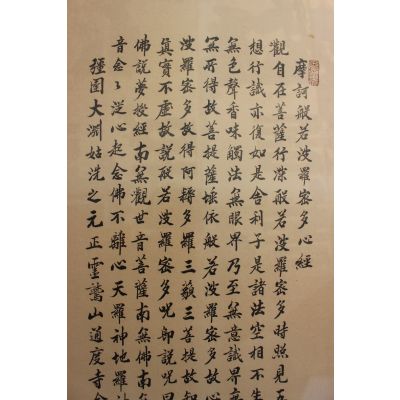 摩訶般若波羅蜜多心經
觀自在菩薩行深般若波羅蜜多時照見五
想行識亦復如是舍利子是諸法空相不生
無色聲香味觸法無眼界乃至無意識界無
無所得故菩提薩埵依般若波羅蜜多故心
波羅蜜多故得阿耨多羅三藐三菩提故
真實不虛故說般若波羅蜜多咒即說咒曰
佛說夢授經南無觀世音菩薩南無佛南
音念々從心起念佛不離心天羅神地羅神
疆圉大淵姑洗之元正靈鷲山道度寺